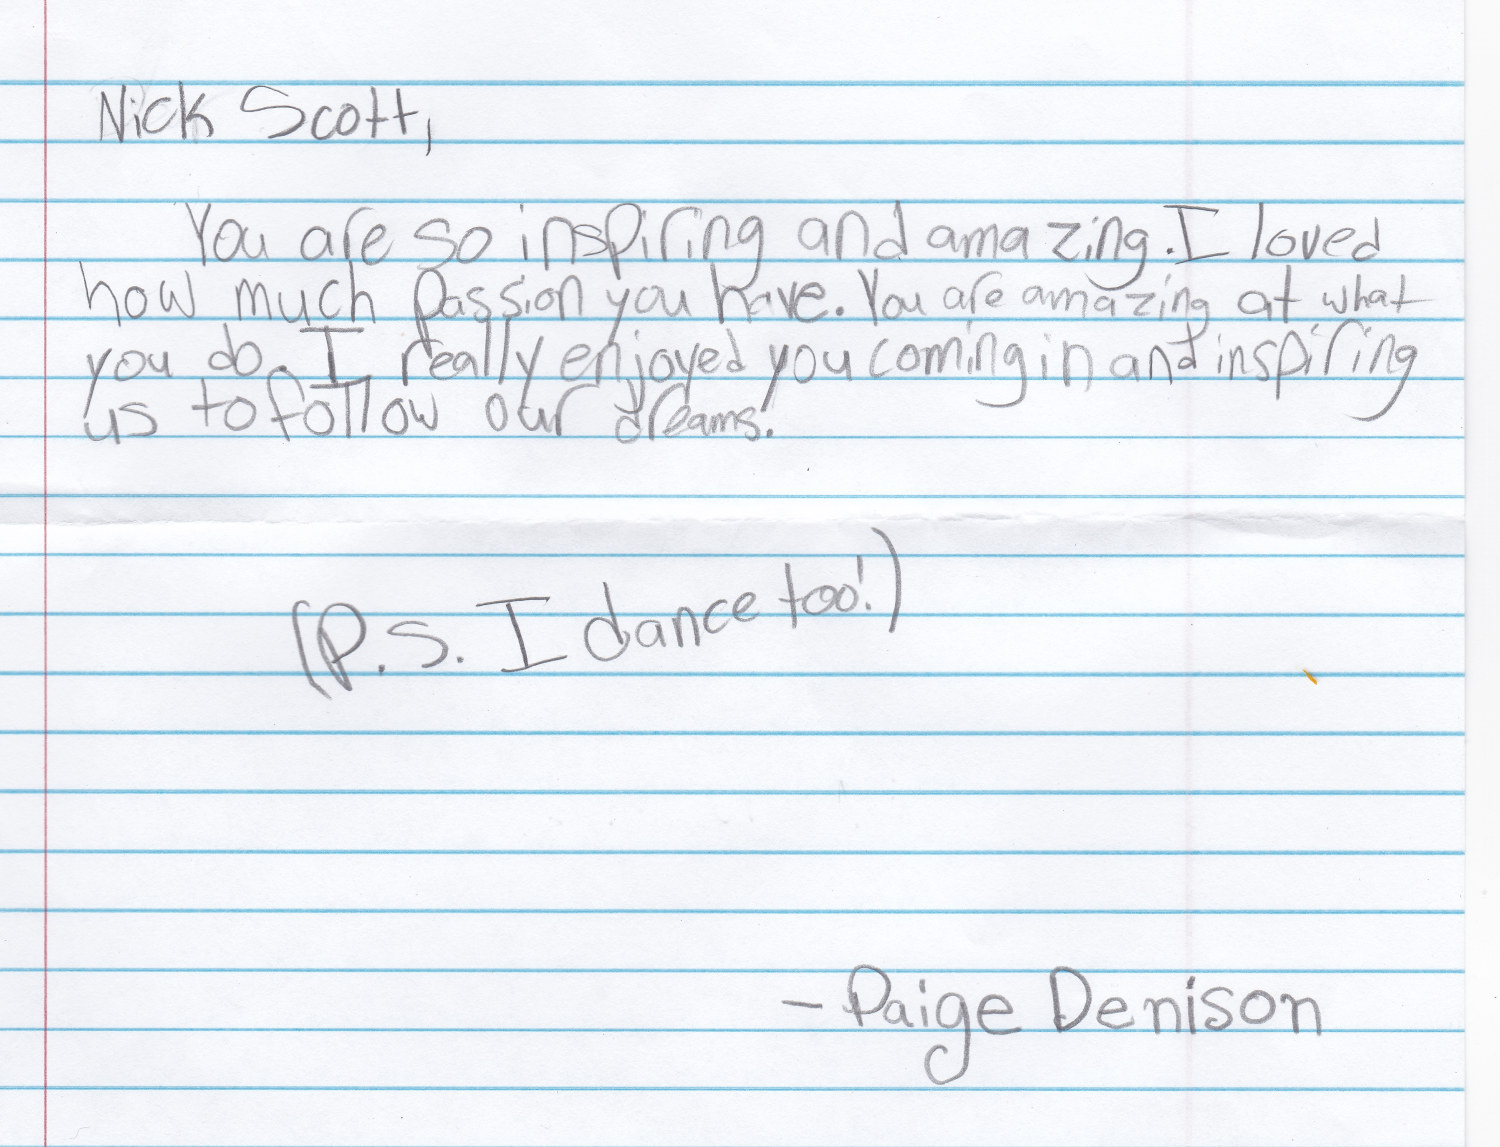 Nick Scott,
You are so inspiring and amazing. I loved
how much passion you have. You are amazing at what
you do. I really enjoyed you coming in and inspiring
us to follow our dreams.
(P.S. I dance too!)
- Paige Denison